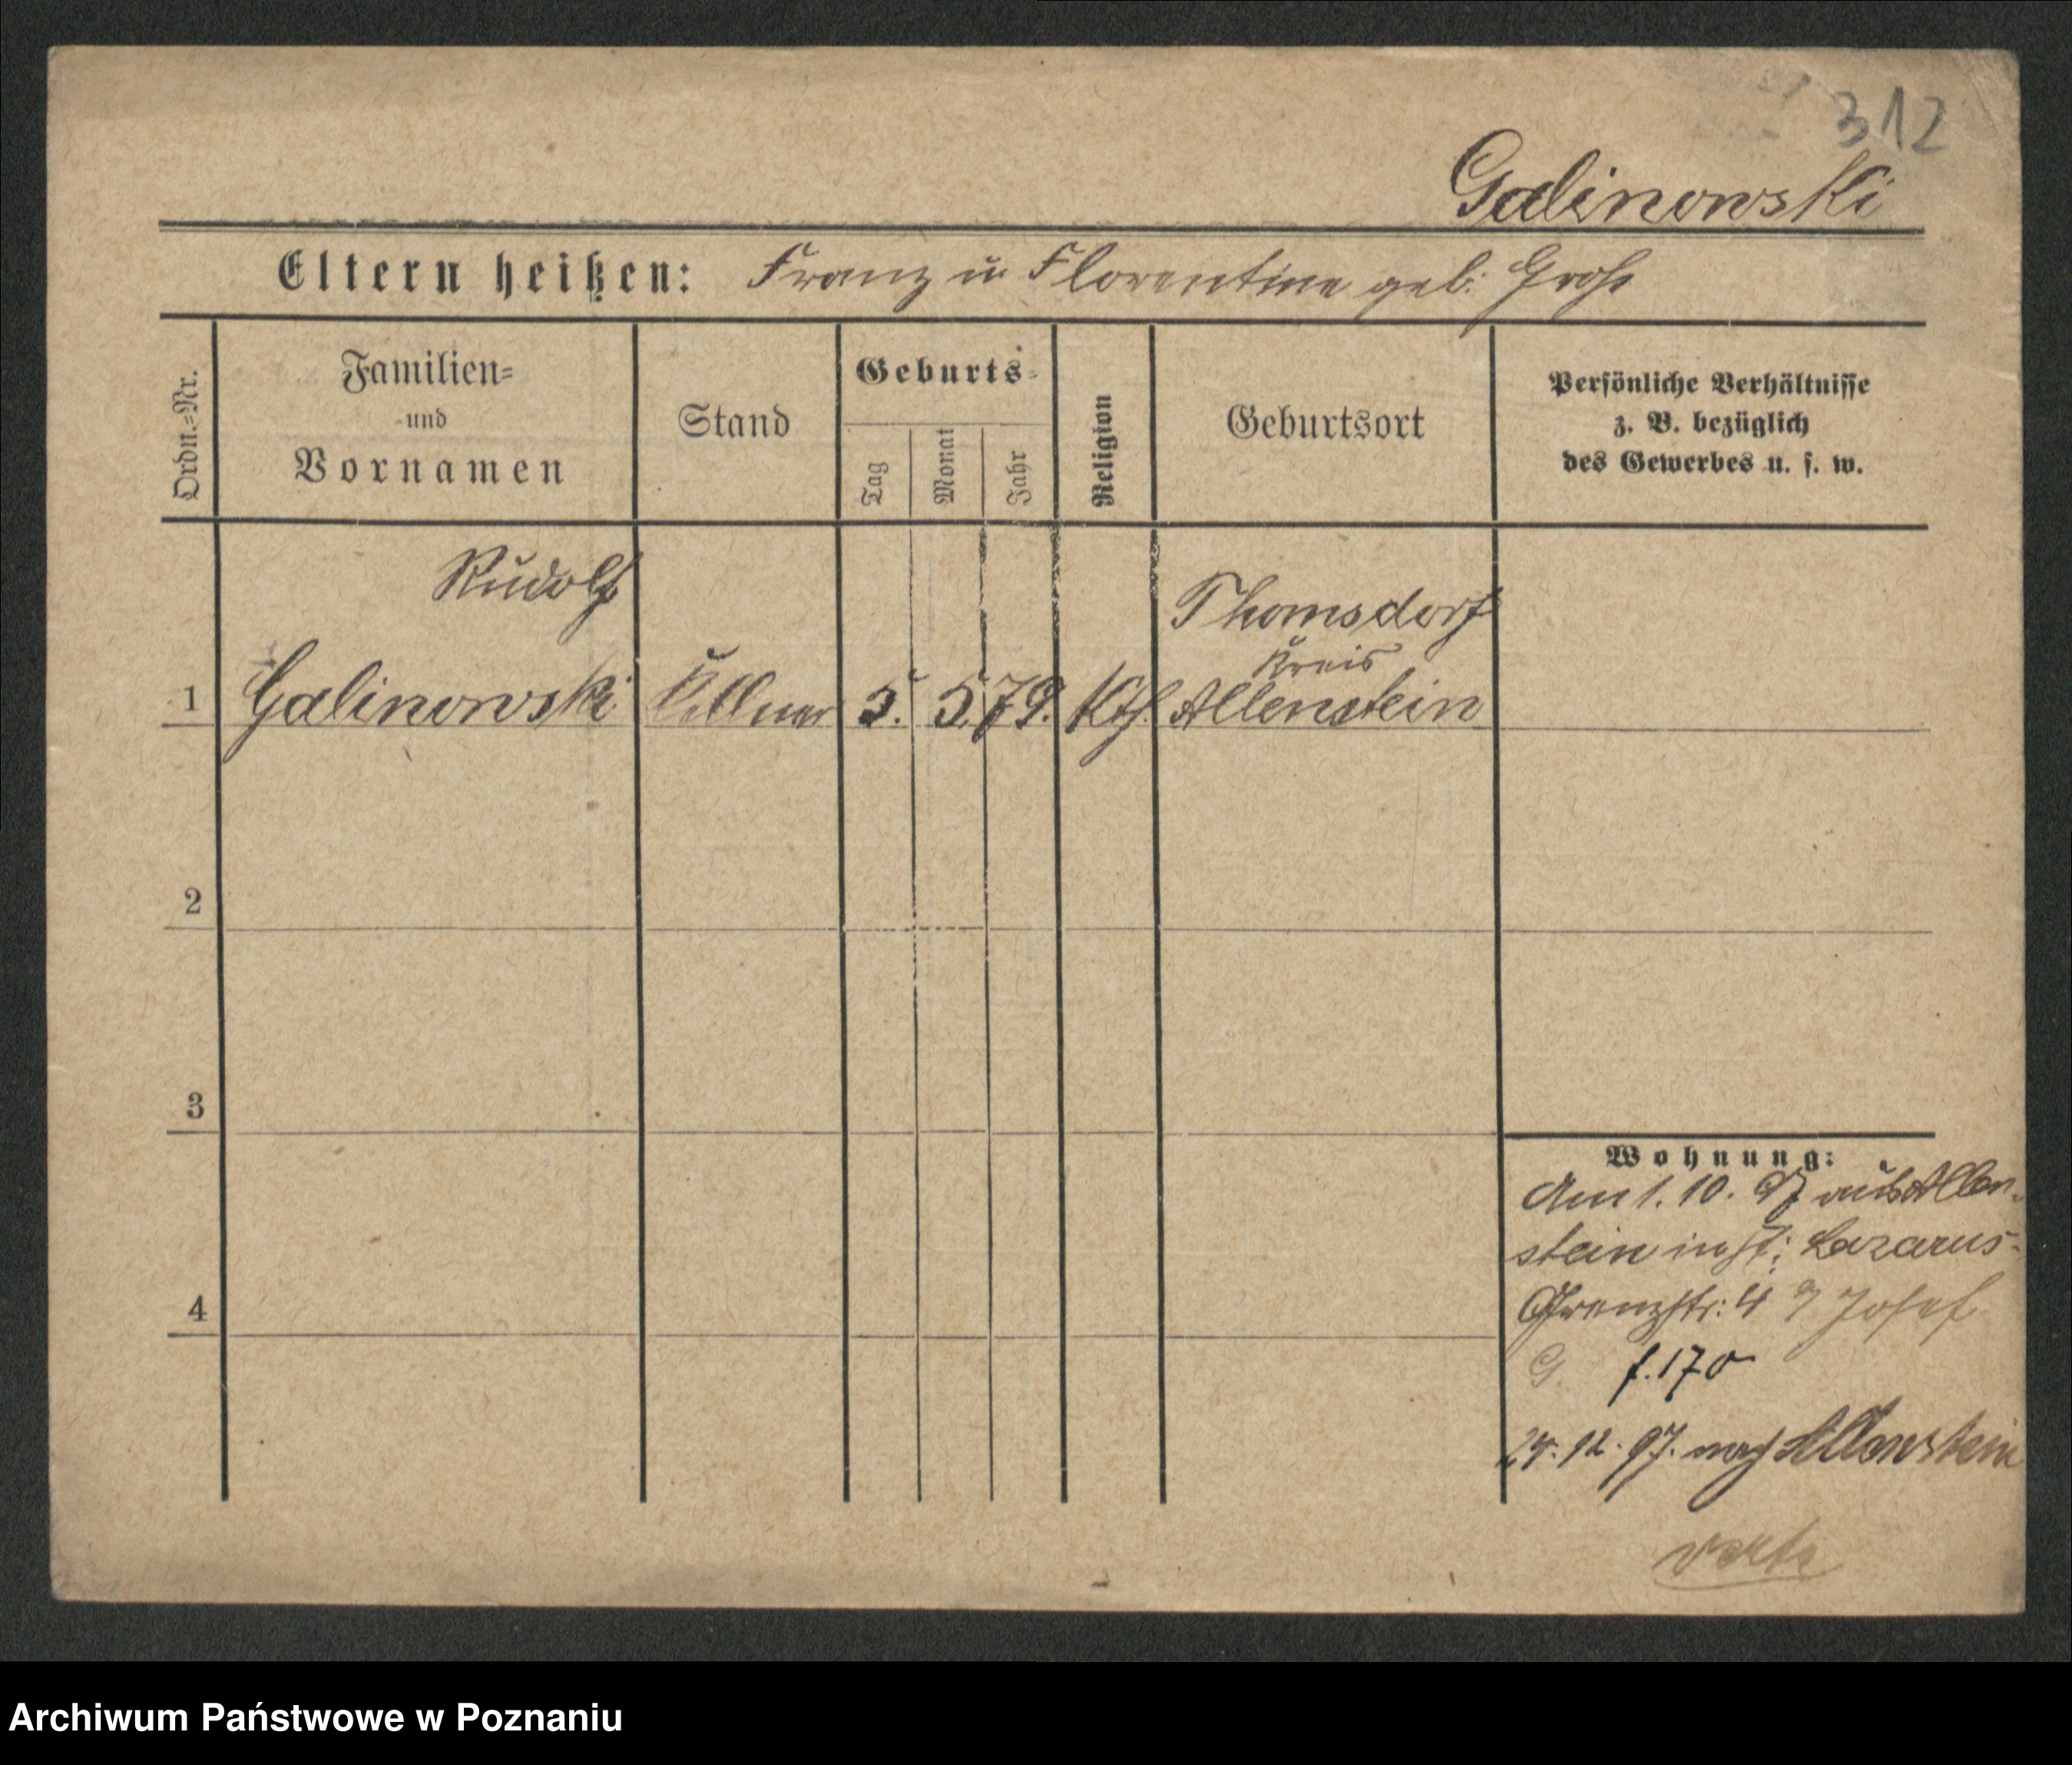 312
Galinowski
Eltern heißen: Franz u Florentine geb: Groß
Ordn.=Nr.
Familien=
und
Vornamen
Stand
Geburts=
Tag
Monat
Jahr
Religion
Geburtsort
Persönliche Verhältnisse
z. B. bezüglich
des Gewerbes u. s. w.
Rudolf
Thomsdorf
Kreis
1 Galinowski Kellner 5. 5. 79. Kth. Allenstein
2
3
4
Wohnung:
Am 1. 10. 97 aus Allen-
stein in St: Lazarus-
Grenzstr: 4 Josef
G f. 170
24. 12. 97. nach Allenstein
verte
Archiwum Państwowe w Poznaniu